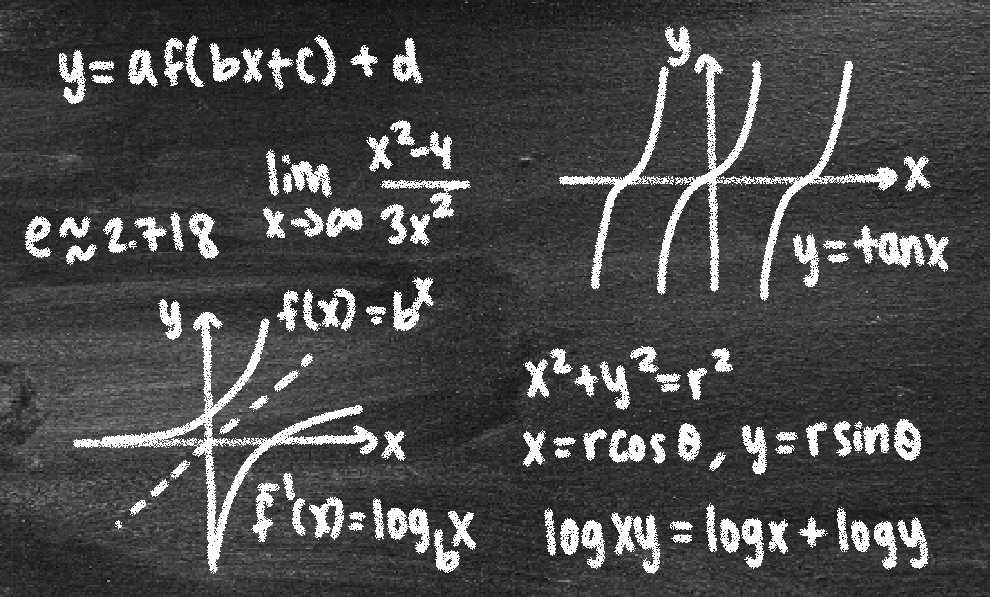 y = af(bx+c) + d
lim x→∞ (x²-4)/(3x²)
e ≈ 2.718
y
x
y = tanx
y
f(x) = bˣ
x
f⁻¹(x) = log_b x
x² + y² = r²
x = rcosθ, y = rsinθ
logxy = logx + logy